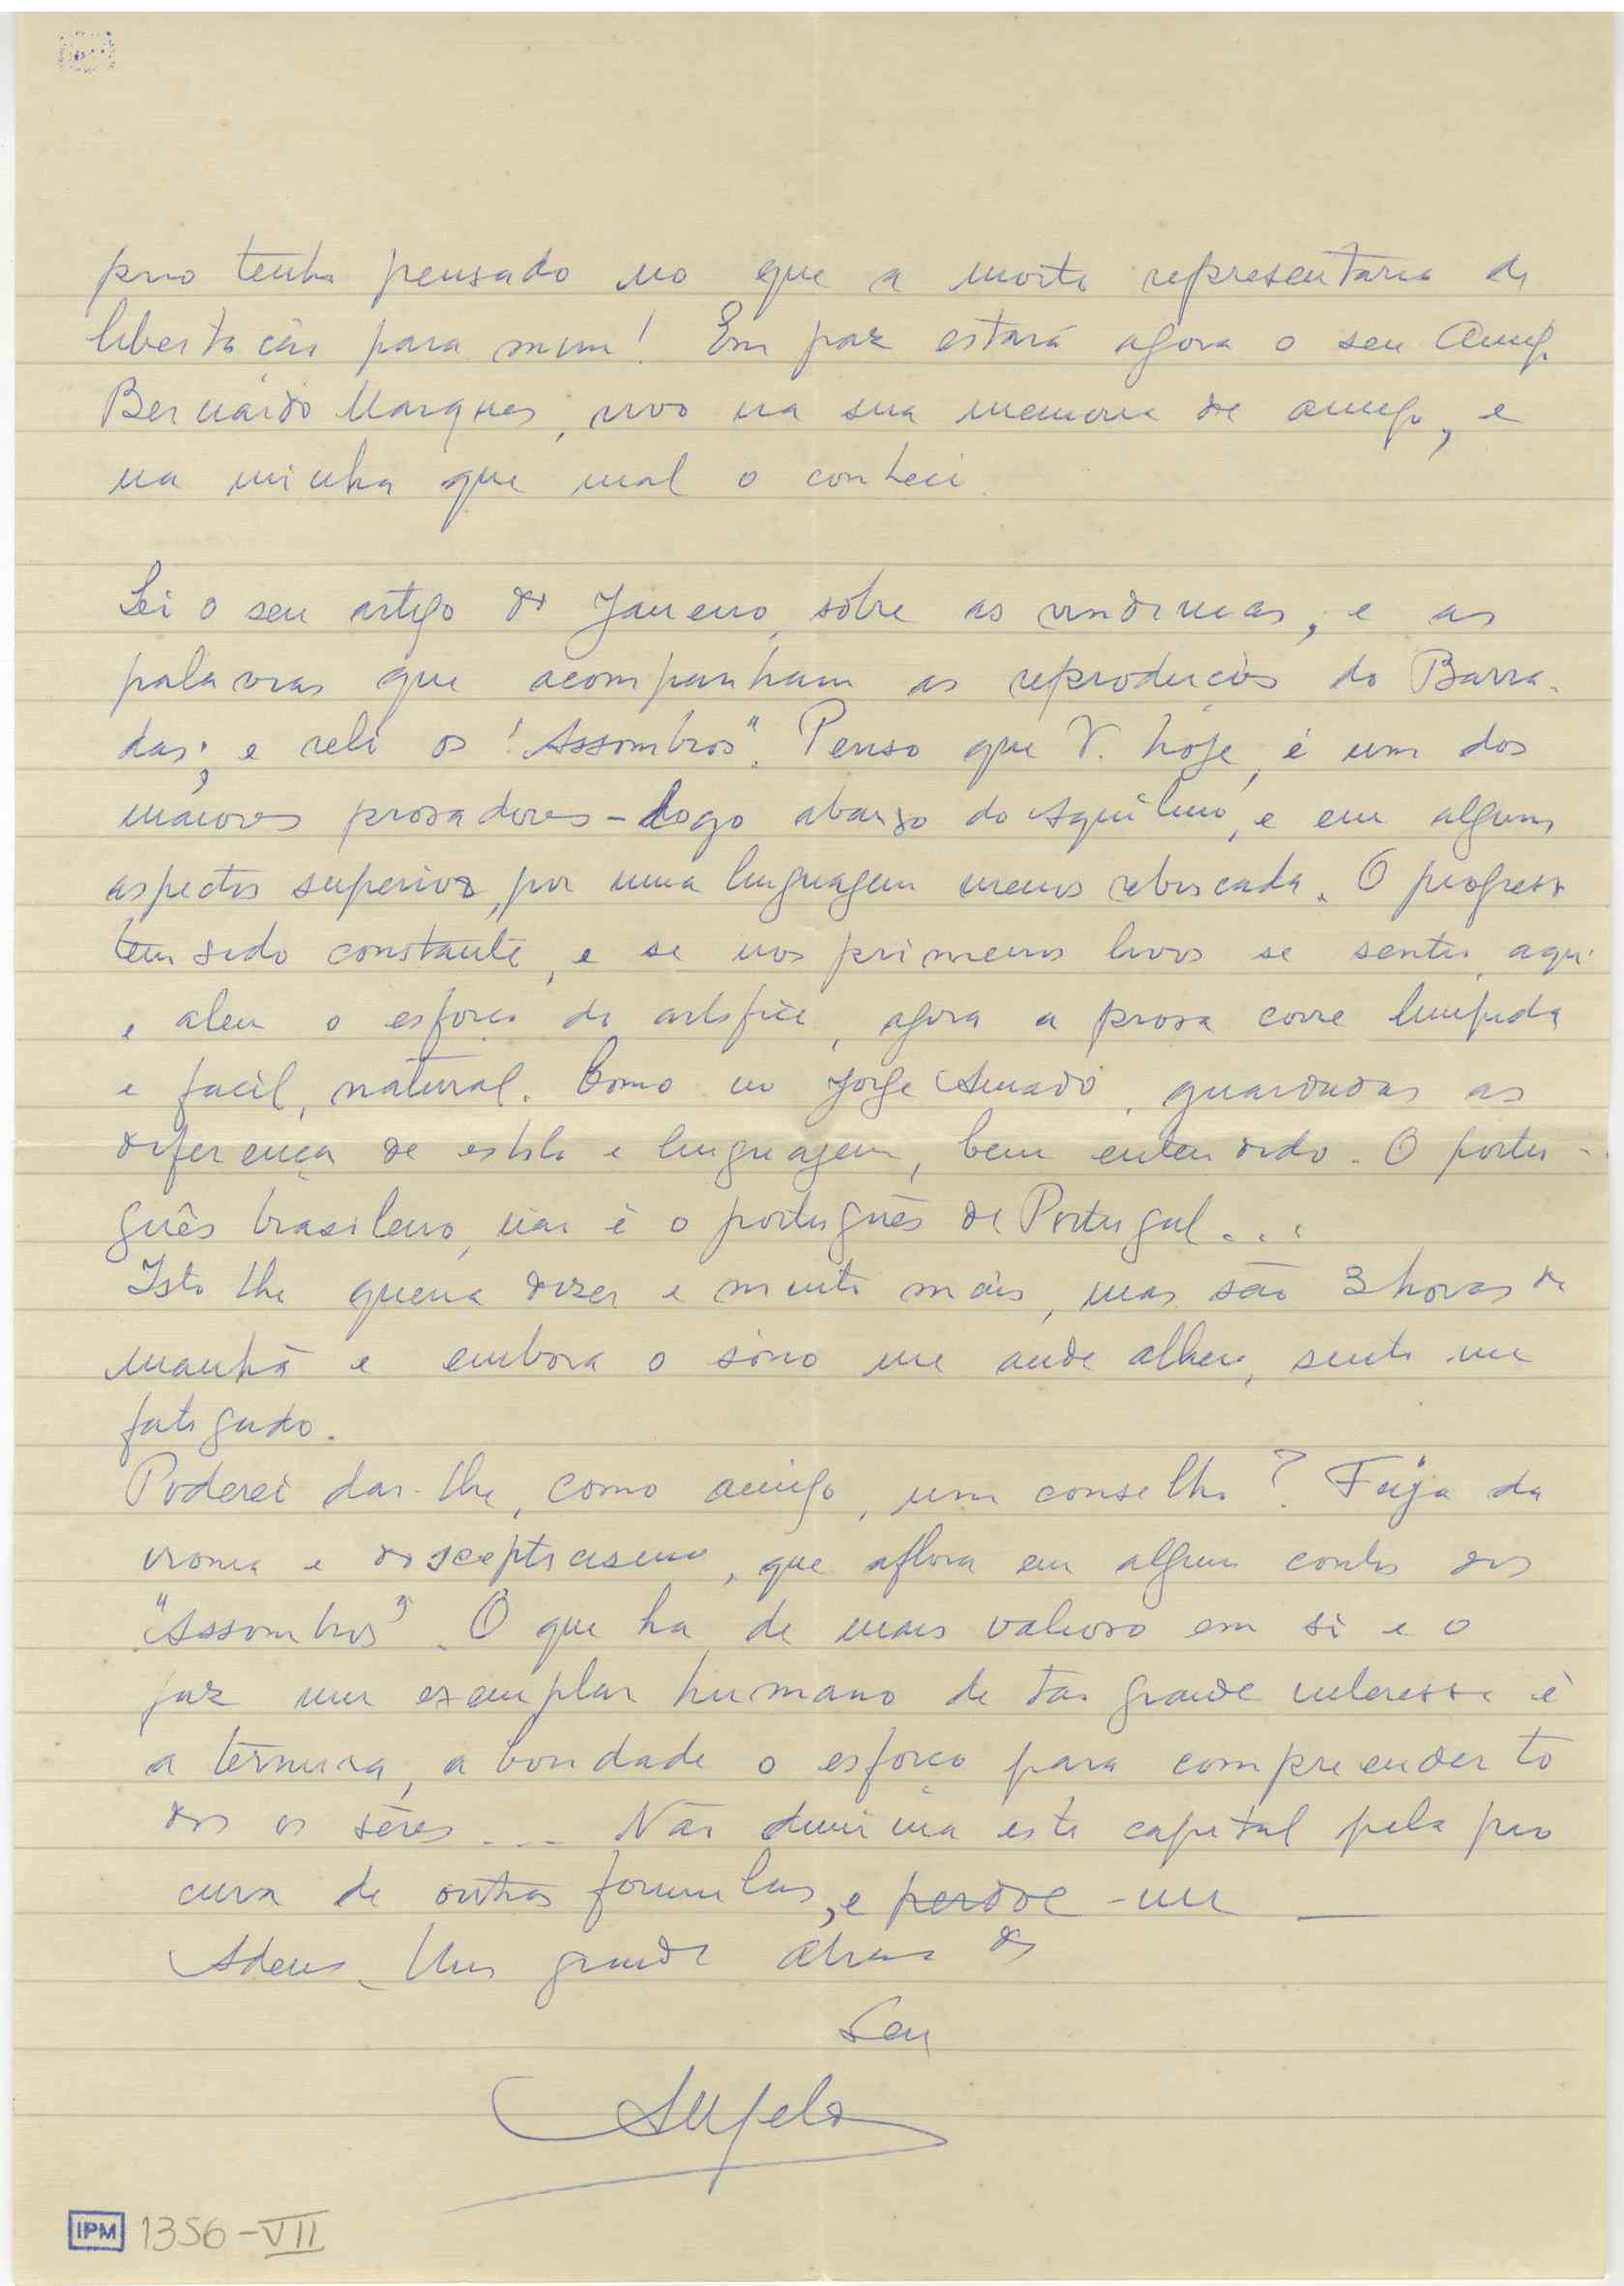 prio tenha pensado no que a morte representaria de
libertação para mim! Em paz estará agora o seu Amigo
Bernardo Marques, vivo na sua memoria de amigo, e
na minha que mal o conheci.
Lei o seu artigo do Janeiro, sôbre as vindimas, e as
palavras que acompanham as reproduções do Barra-
das; e reli os "Assombros". Penso que V. hoje, é um dos
maiores prosadores - logo abaixo do Aquilino, e em alguns
aspectos superior, por uma linguagem menos rebuscada. O progresso
tem sido constante, e se nos primeiros livros se sentia, aqui
e alem o esforço do artifice, agora a prosa corre limpida
e facil, natural. Como no Jorge Amado, guardadas as
diferença de estilo e linguagem, bem entendido. O portu-
guês brasileiro, não é o português de Portugal...
Isto lhe queria dizer e muito mais, mas são 3 horas da
manhã e embora o sôno me ande alheio, sinto-me
fatigado.
Poderei dar-lhe, como amigo, um conselho? Fuja da
ironia e do scepticismo, que aflora em alguns contos dos
"Assombros". O que ha de mais valioso em si e o
faz um exemplar humano de tão grande interesse é
a ternura, a bondade o esforço para compreender to
dos os sêres... Não diminua este capital pela pro
cura de outras formulas, e perdoe-me —
Adeus. Um grande abraço do
Seu
IPM 1356-VII